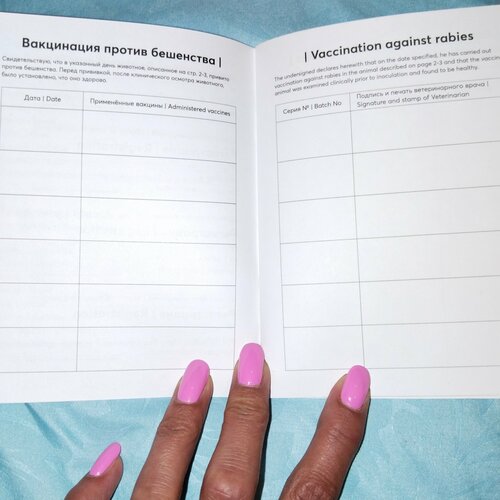 Вакцинация против бешенства |
Свидетельствую, что в указанный день животное, описанное на стр. 2-3, привито
против бешенства. Перед прививкой, после клинического осмотра животного,
было установлено, что оно здорово.
Дата | Date
Применённые вакцины | Administered vaccines
| Vaccination against rabies
The undersigned declares herewith that on the date specified, he has carried out
vaccination against rabies in the animal described on page 2-3 and that the
animal was examined clinically prior to inoculation and found to be healthy.
Серия № | Batch No
Подпись и печать ветеринарного врача |
Signature and stamp of Veterinarian